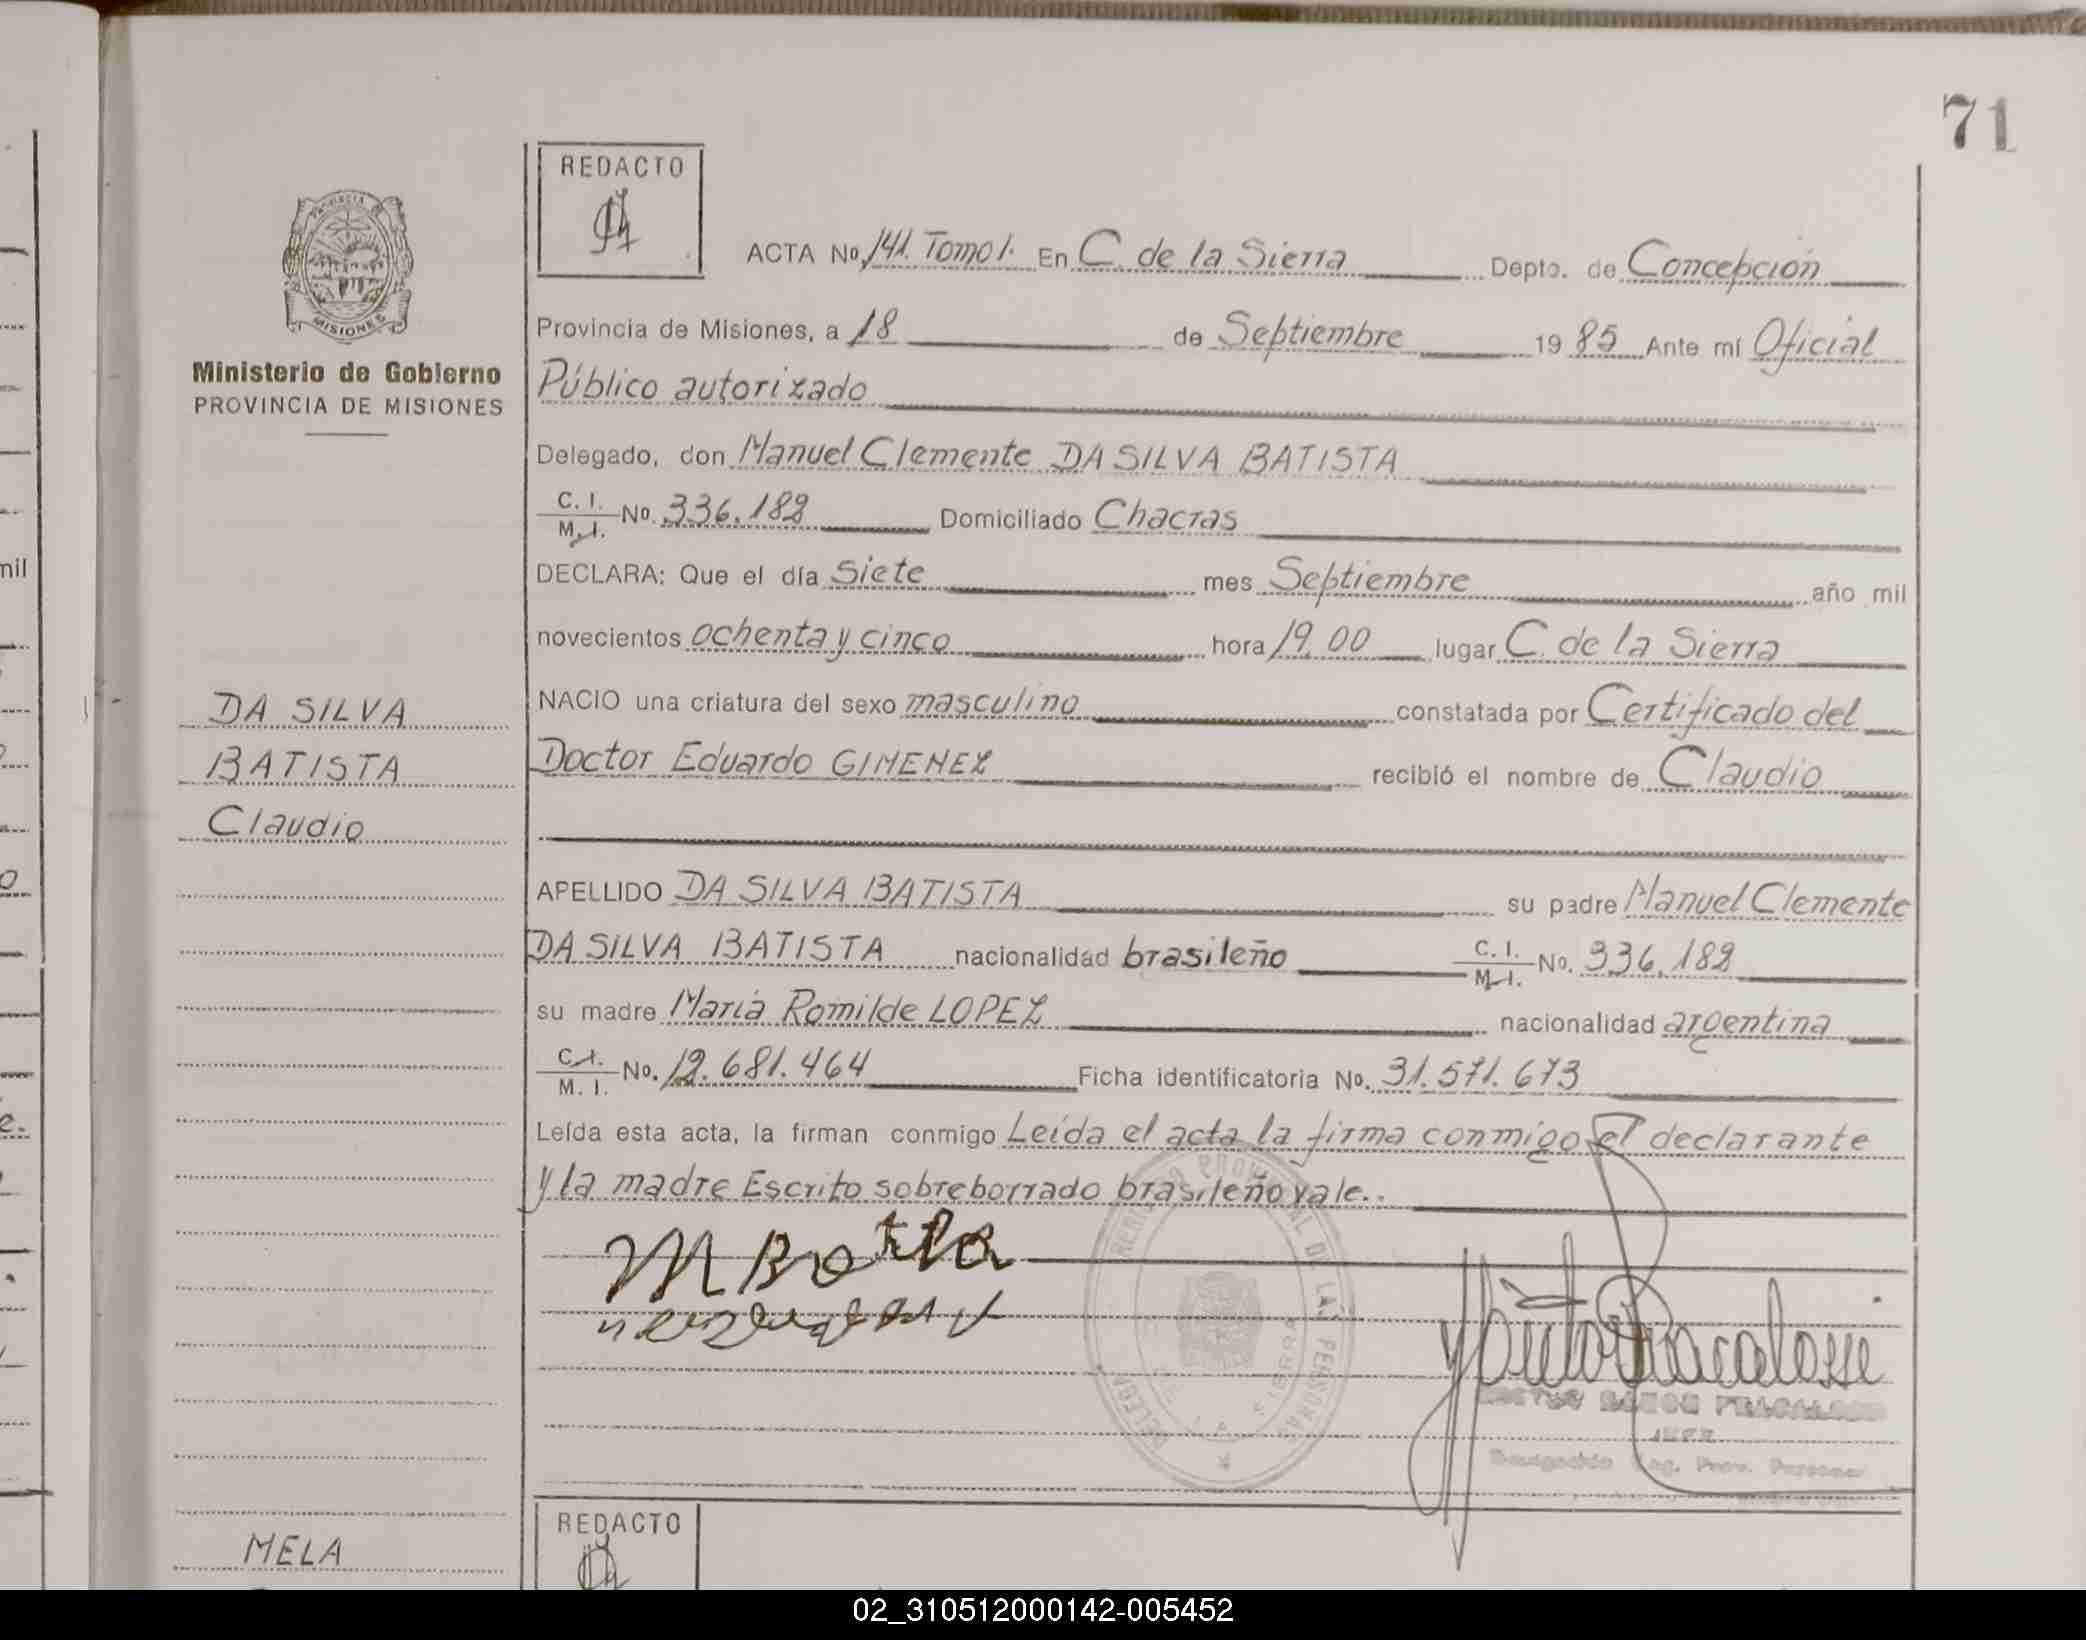 71
REDACTO
ACTA No. 141. Tomo 1. En C. de la Sierra Depto. de Concepción
Provincia de Misiones, a 18 de Septiembre 1985 Ante mí Oficial
Público autorizado
PROVINCIA
MISIONES
Ministerio de Gobierno
PROVINCIA DE MISIONES
Delegado, don Manuel Clemente DA SILVA BATISTA
C. I.
M. I. No. 336.182 Domiciliado Chacras
DECLARA: Que el día Siete mes Septiembre año mil
novecientos ochenta y cinco hora 19,00 lugar C. de la Sierra
DA SILVA
BATISTA
Claudio
NACIO una criatura del sexo masculino constatada por Certificado del
Doctor Eduardo GIMENEZ recibió el nombre de Claudio
APELLIDO DA SILVA BATISTA su padre Manuel Clemente
DA SILVA BATISTA nacionalidad brasileño C. I.
M. I. No. 336.182
su madre María Romilde LOPEZ nacionalidad argentina
C. I.
M. I. No. 12.681.464 Ficha identificatoria No. 31.571.673
Leída esta acta, la firman conmigo Leída el acta la firma conmigo el declarante
y la madre Escrito sobreborrado brasileño vale..
REDACTO
MELA
mil
02_310512000142-005452